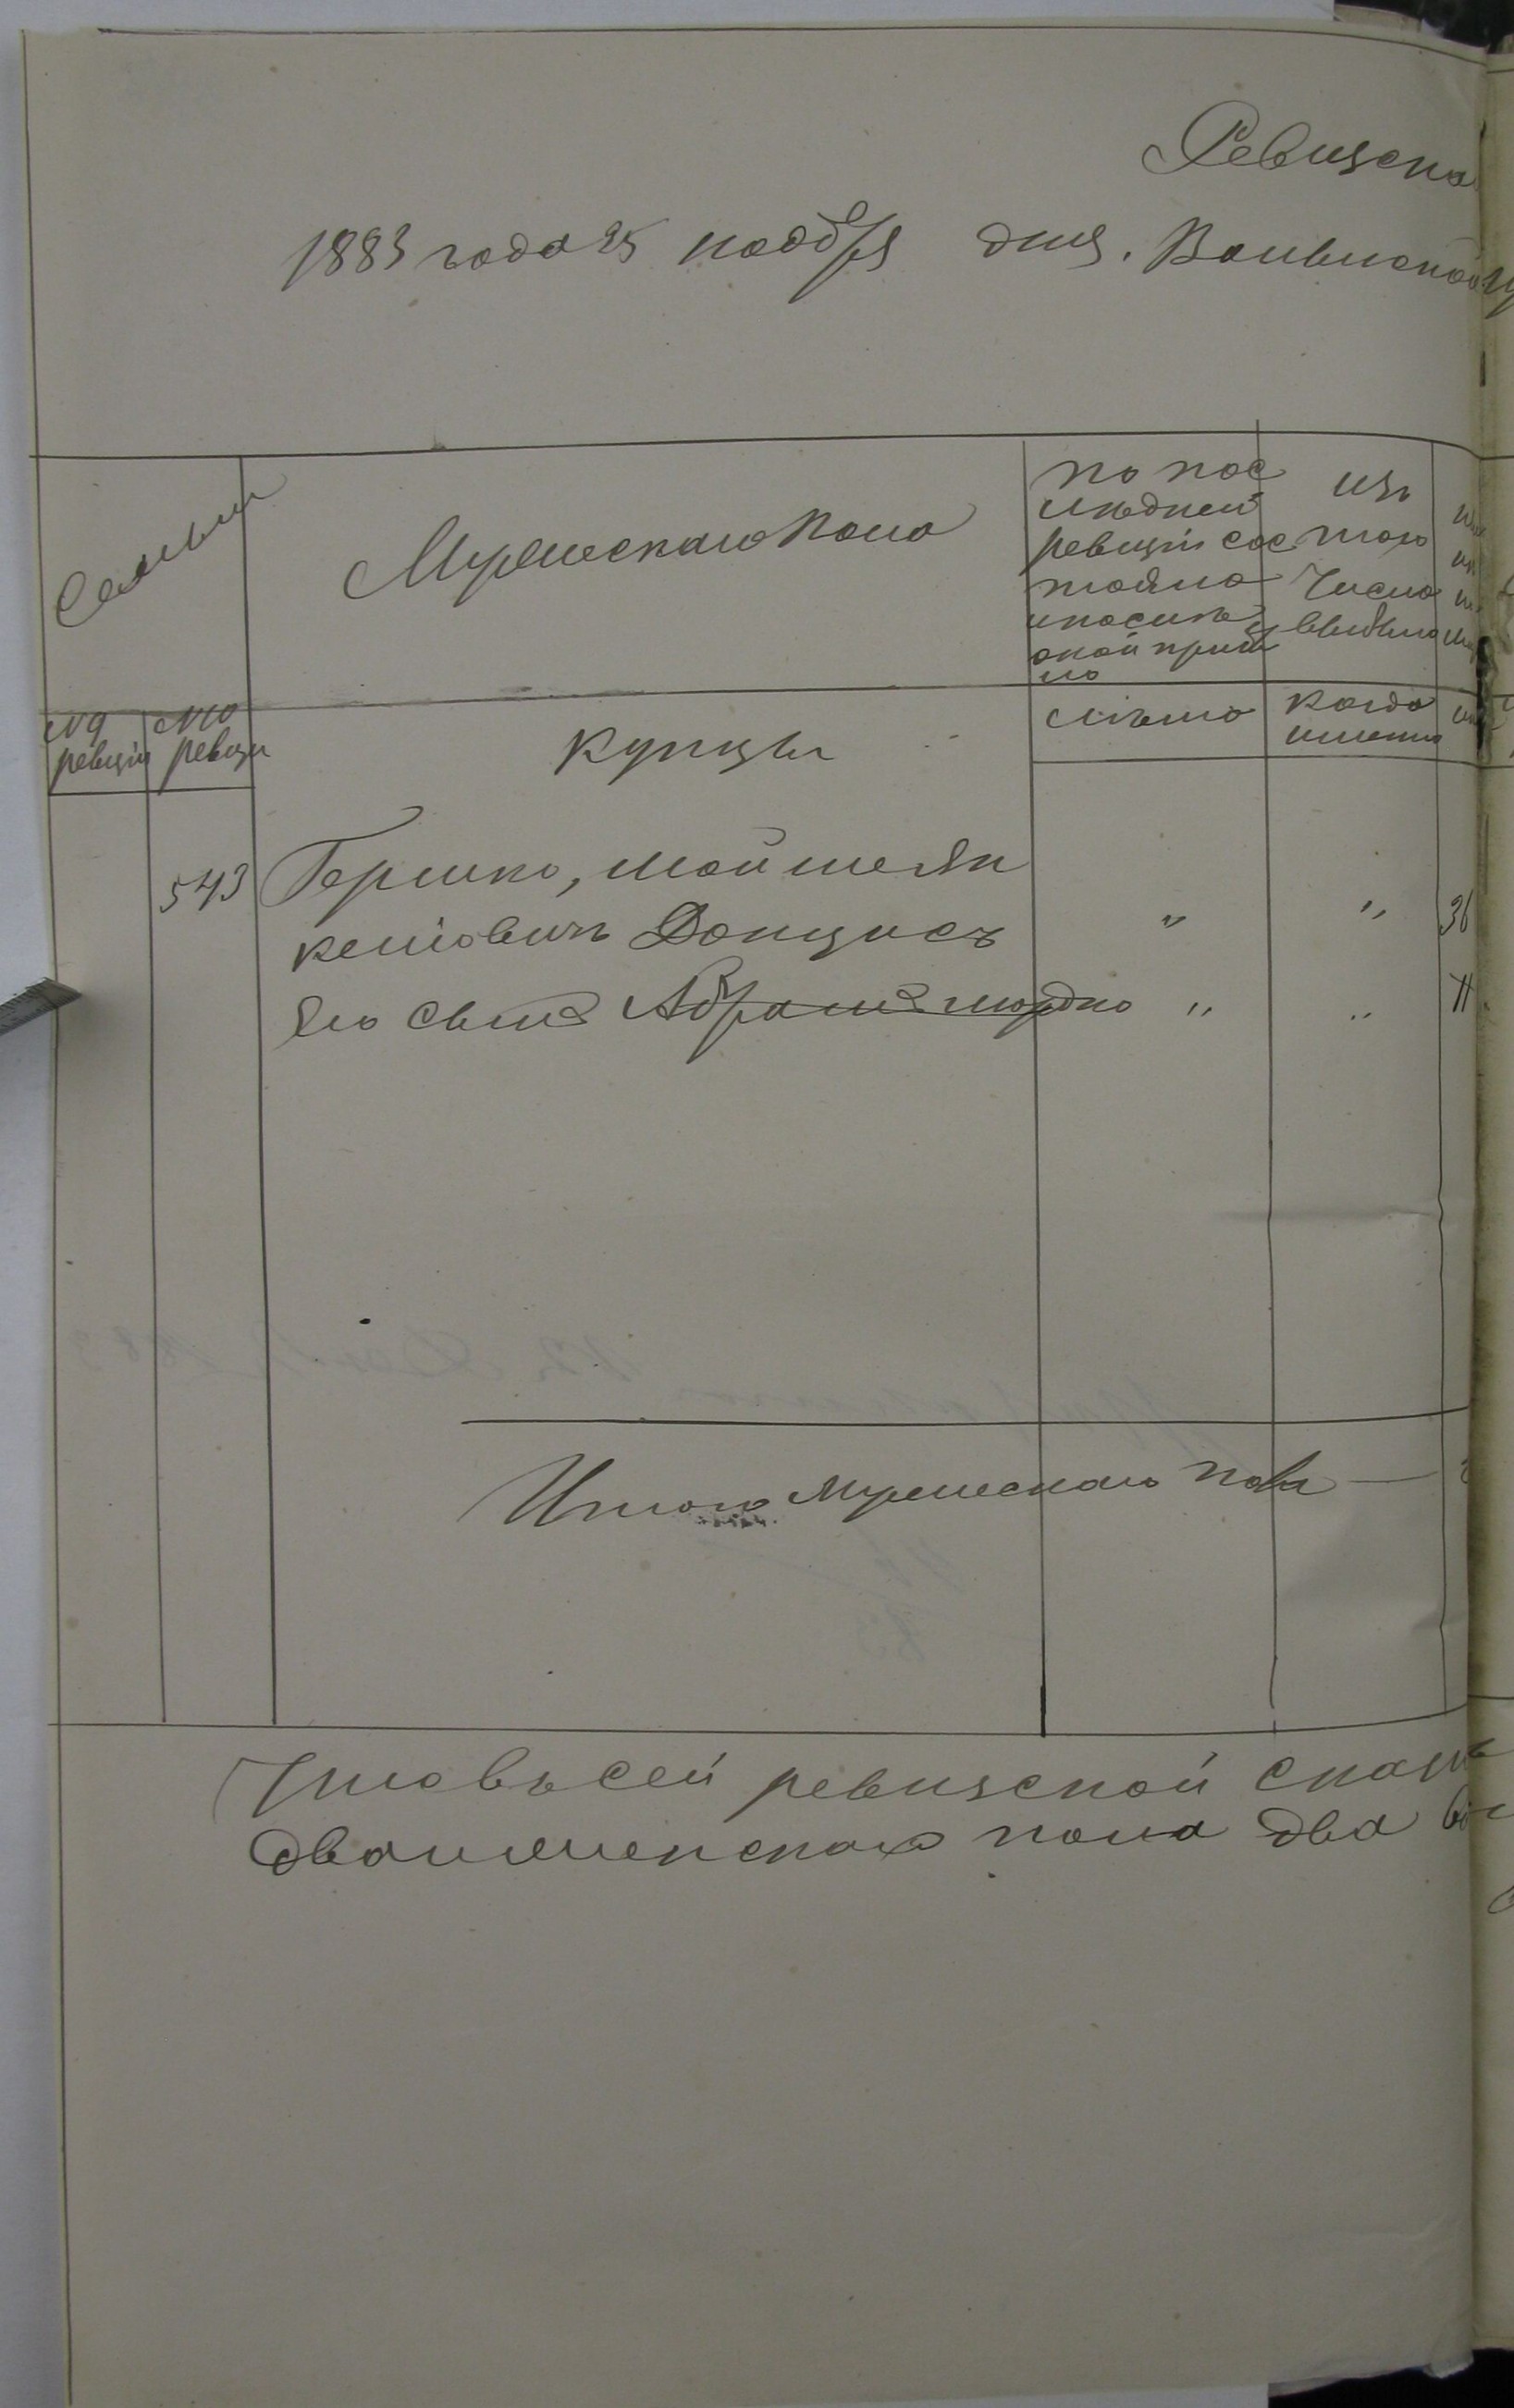 Ревизска
1883 года 25 ноября дня. Волынской
Семьи
Мужескаго Пола
по пос
лѣдней
ревизіи сос
тояло
и после
оной прибы
ло
изъ
того
Числа
выбыло
№ 9
ревизіи
№ 10
ревизи
Купцы
лѣта
Когда
именно
543 Гершко, Мойше Ян
келіовичъ Донцисъ " " 36
Его Сынъ Абрамъ Мордко " " 11
Итого Мужескаго пола —
Что въ сей ревизской сказкѣ
два мужескаго пола два